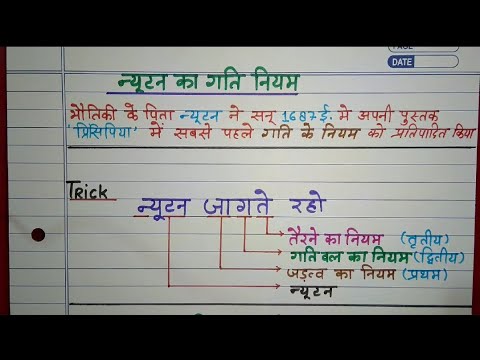 PAGE
DATE
न्यूटन का गति नियम
भौतिकी के पिता न्यूटन ने सन् 1687ई. मे अपनी पुस्तक
'प्रिंसिपिया' में सबसे पहले गति के नियम को प्रतिपादित किया
Trick
न्यूटन जागते रहो
तैरने का नियम (तृतीय)
गति बल का नियम (द्वितीय)
जड़त्व का नियम (प्रथम)
न्यूटन